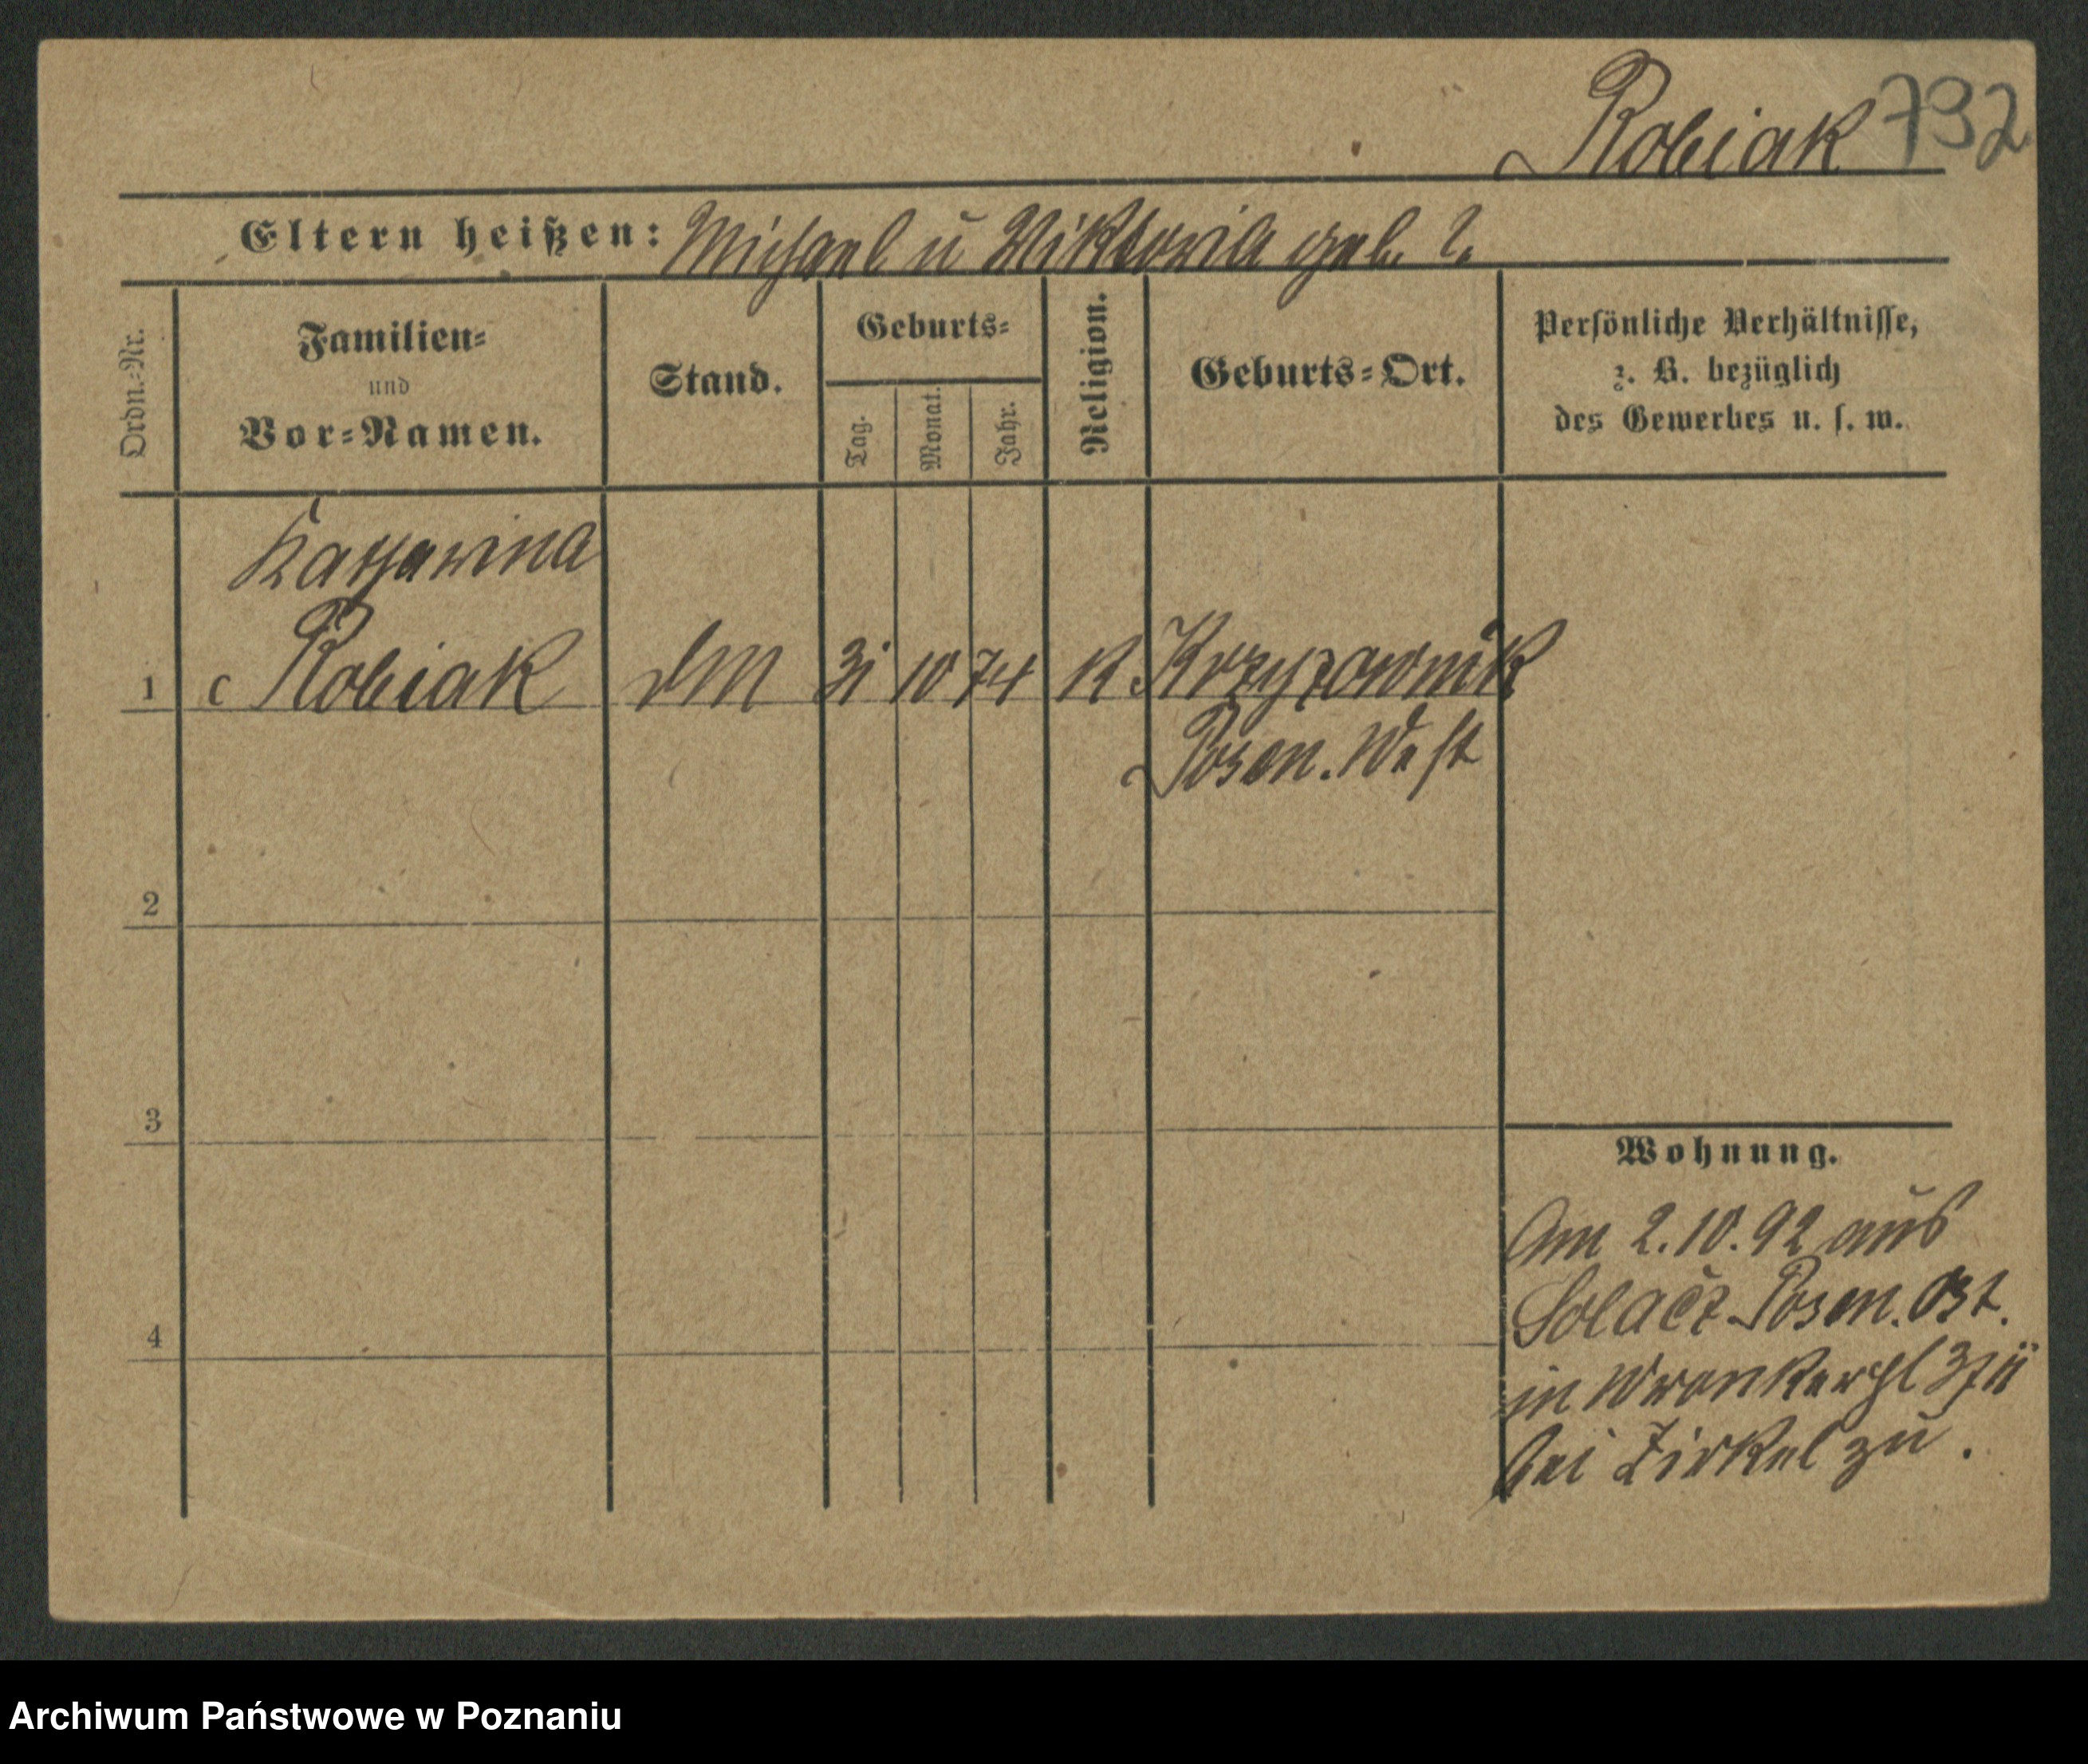 Robiak 732
Eltern heißen: Michael u Viktoria geb. ?
Ordn.-Nr.
Familien-
und
Vor-Namen.
Stand.
Geburts-
Tag.
Monat.
Jahr.
Religion.
Geburts-Ort.
Persönliche Verhältnisse,
z. B. bezüglich
des Gewerbes u. s. w.
Katharina
1 c Robiak DM 31 10 74 K Krzyzownik
Posen. West
2
3
4
Wohnung.
Am 2.10.92 aus
Solacz Posen. Ost.
in Wronkerstr
bei Zirkel zu.
Archiwum Państwowe w Poznaniu